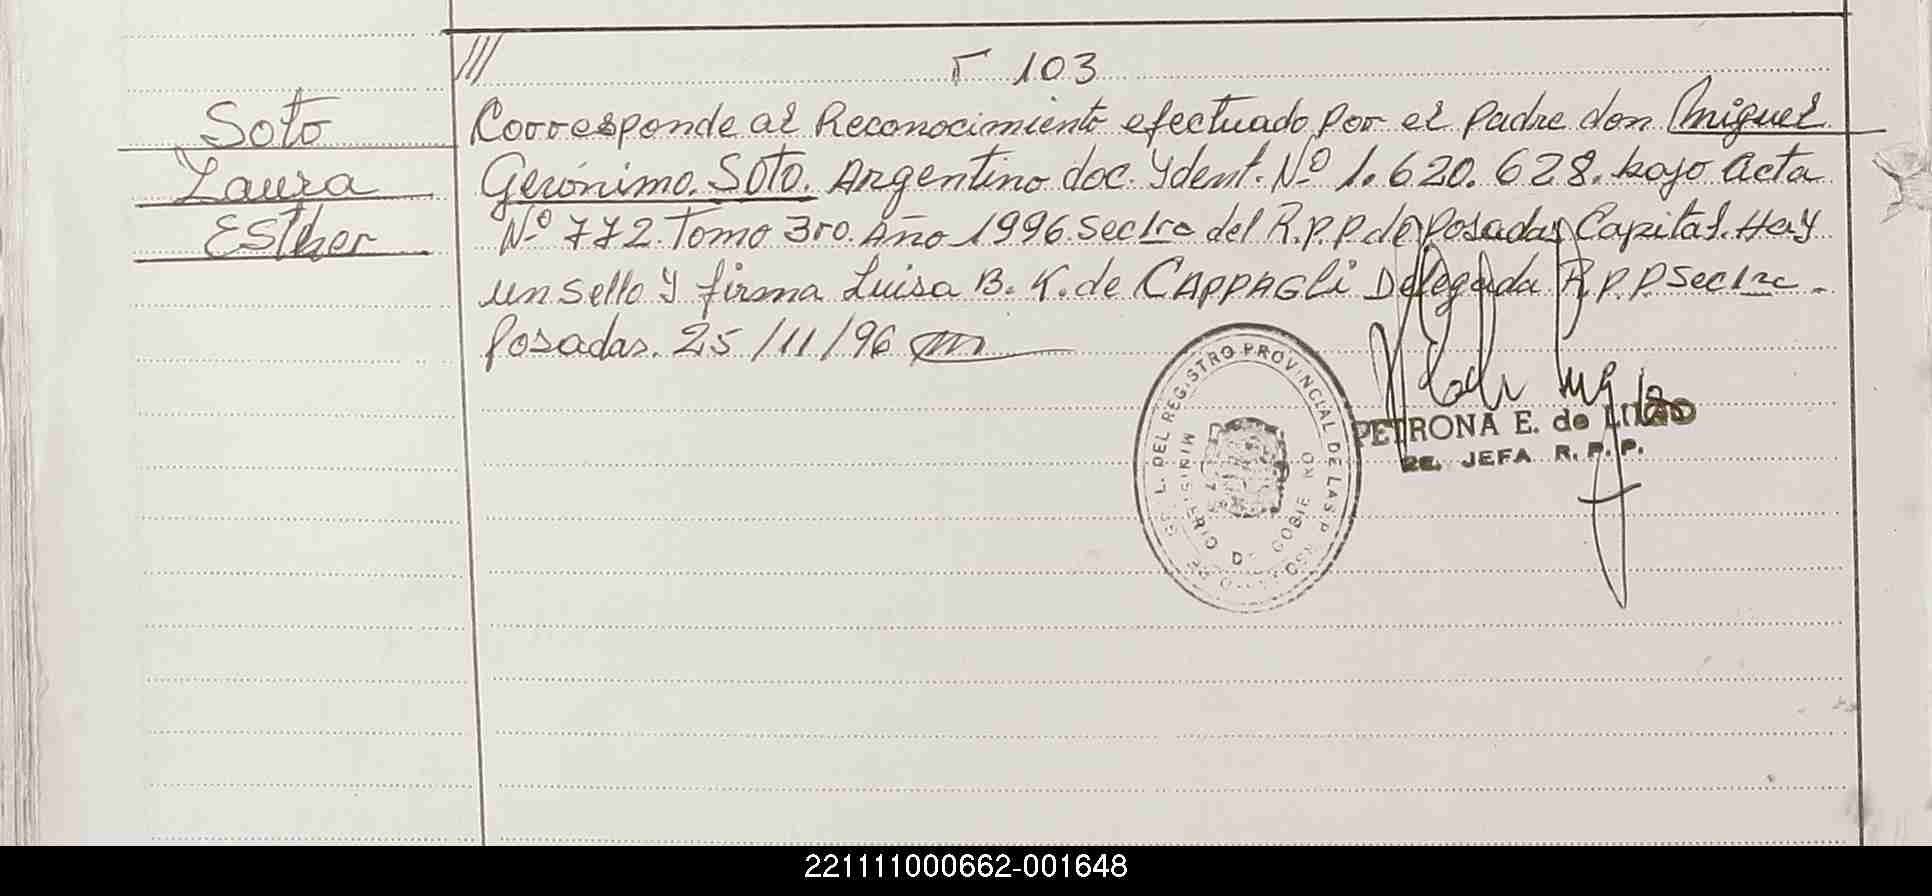 /// F 103
Soto
Laura
Esther
Corresponde al Reconocimiento efectuado por el padre don Miguel
Gerónimo. SOTO. Argentino doc. Ydent. Nº 1.620.628. bajo acta
Nº 772. Tomo 3ro. Año 1996. Sec 1ra del R.P.P de Posadas Capital. Hay
un sello y firma Luisa B. K. de CAPPAGLI Delegada R.P.P Sec 1ra.
Posadas. 25/11/96
DEL REGISTRO PROVINCIAL DE LAS
MINISTERIO DE GOBIE NO
PETRONA E. de LUGO
2E. JEFA R. P. P.
221111000662-001648